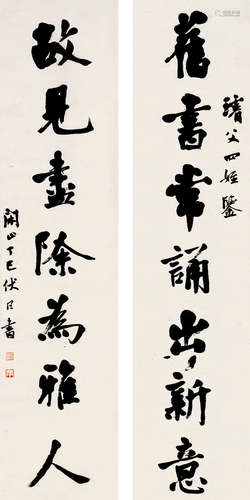 舊書常誦出新意
濤父四姪鑒
故見盡除為雅人
闓山丁巳伏日書